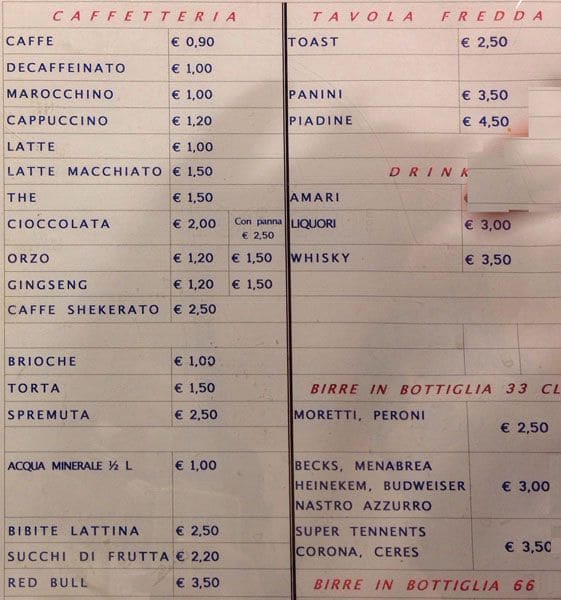 CAFFETTERIA
CAFFE € 0,90
DECAFFEINATO € 1,00
MAROCCHINO € 1,00
CAPPUCCINO € 1,20
LATTE € 1,00
LATTE MACCHIATO € 1,50
THE € 1,50
CIOCCOLATA € 2,00 Con panna
€ 2,50
ORZO € 1,20 € 1,50
GINGSENG € 1,20 € 1,50
CAFFE SHEKERATO € 2,50
BRIOCHE € 1,00
TORTA € 1,50
SPREMUTA € 2,50
ACQUA MINERALE ½ L € 1,00
BIBITE LATTINA € 2,50
SUCCHI DI FRUTTA € 2,20
RED BULL € 3,50
TAVOLA FREDDA
TOAST € 2,50
PANINI € 3,50
PIADINE € 4,50
DRINK
AMARI
LIQUORI € 3,00
WHISKY € 3,50
BIRRE IN BOTTIGLIA 33 CL
MORETTI, PERONI
€ 2,50
BECKS, MENABREA
HEINEKEM, BUDWEISER € 3,00
NASTRO AZZURRO
SUPER TENNENTS
CORONA, CERES € 3,50
BIRRE IN BOTTIGLIA 66